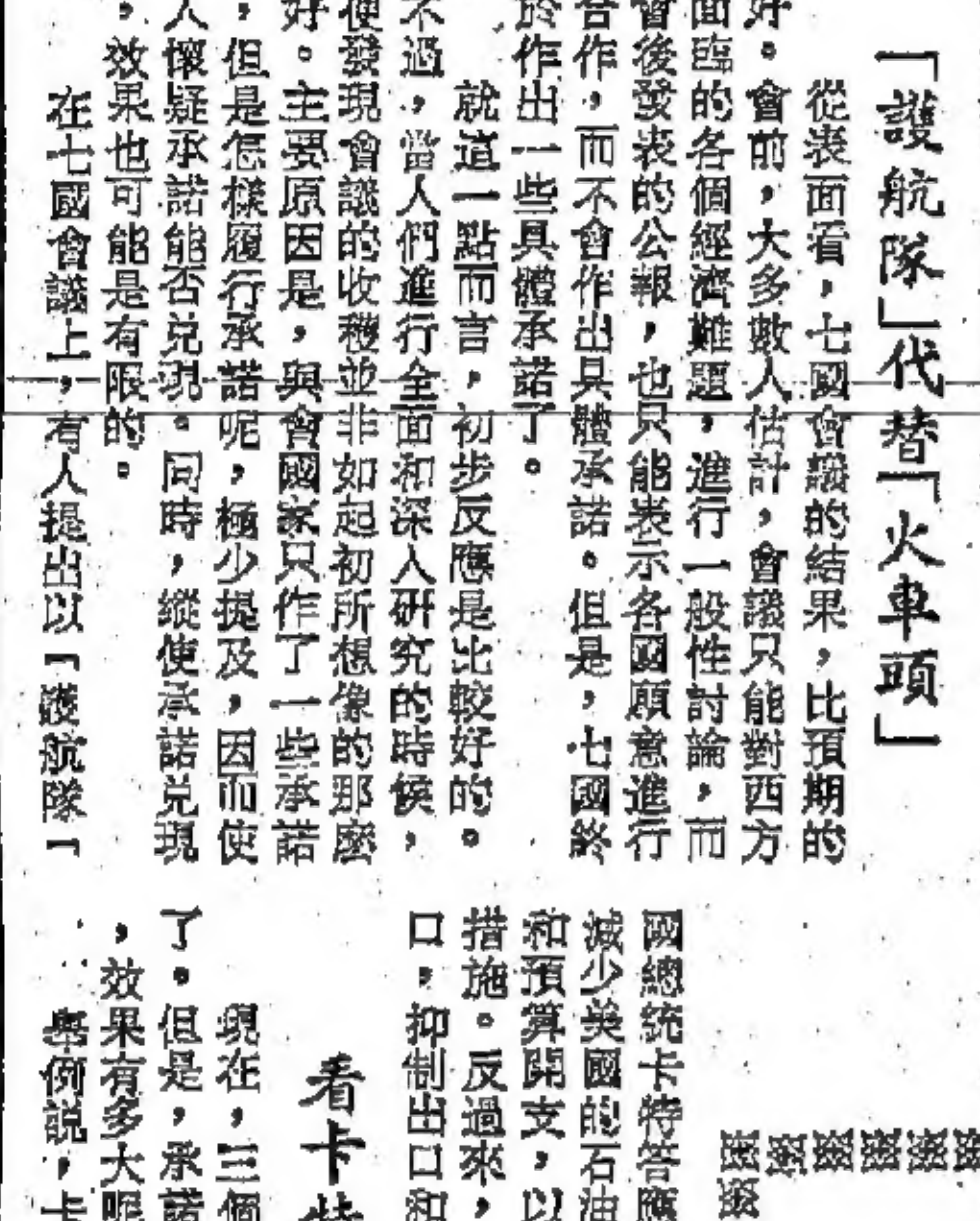 「護航隊」代替「火車頭」
從表面看，七國會議的結果，比預期的
好。會前，大多數人估計，會議只能對西方
面臨的各個經濟難題，進行一般性討論，而
會後發表的公報，也只能表示各國願意進行
合作，而不會作出具體承諾。但是，七國終
於作出一些具體承諾了。
就這一點而言，初步反應是比較好的。
不過，當人們進行全面和深入研究的時候，
便發現會議的收穫並非如起初所想像的那麼
好。主要原因是，與會國家只作了一些承諾
，但是怎樣履行承諾呢，極少提及，因而使
人懷疑承諾能否兌現。同時，縱使承諾兌現
，效果也可能是有限的。
在七國會議上，有人提出以「護航隊「
國總統卡特答應
減少美國的石油
和預算開支，以
措施。反過來，
口，抑制出口和
看卡特
現在，三個
了。但是，承諾
，效果有多大呢
舉例說，卡